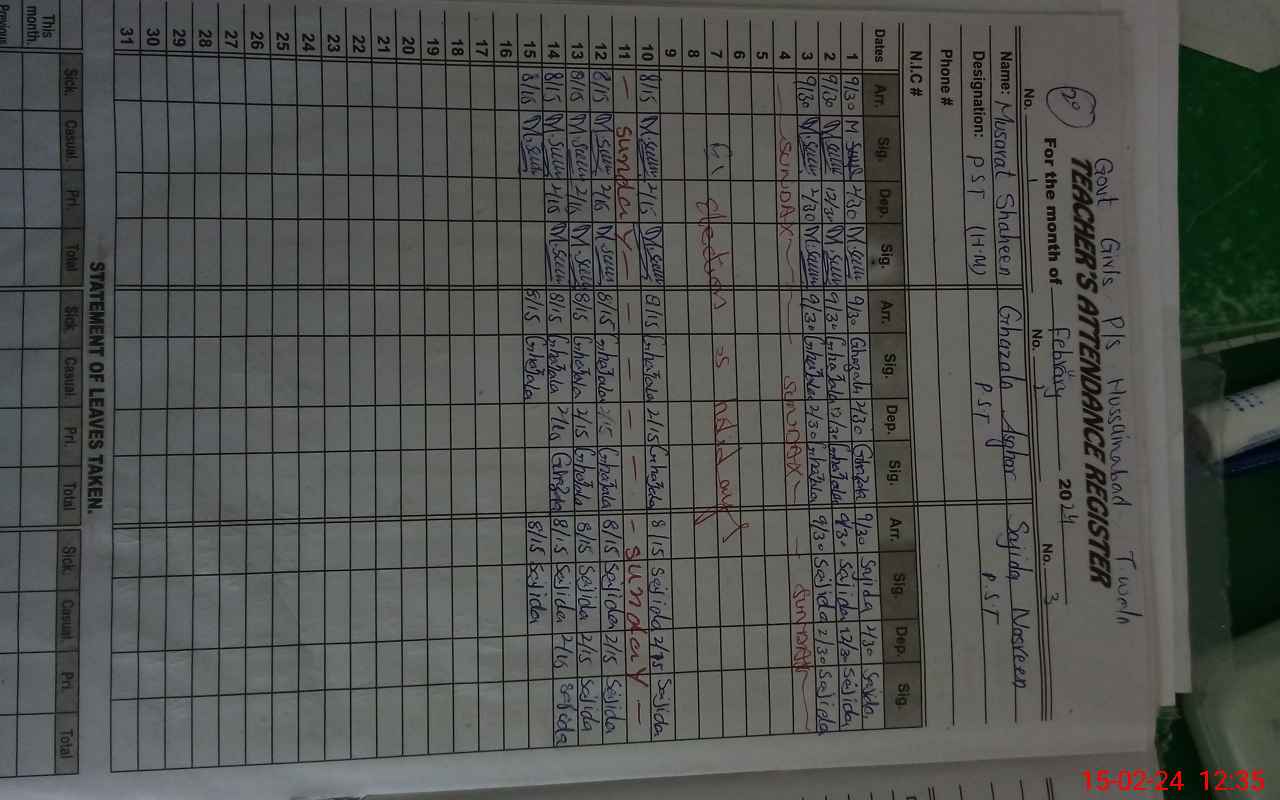 Govt Girls P/s Hussainabad Twoln
TEACHER'S ATTENDANCE REGISTER
20
For the month of February 2024
No. No. 2 No. 3
Name: Musarat Shaheen Ghazala Asghar Sajida Nasreen
Designation: PST (H.M) P.S.T P.S.T
Phone #
N.I.C #
Dates Arr. Sig. Dep. Sig. Arr. Sig. Dep. Sig. Arr. Sig. Dep. Sig.
1 9/30 M. 2/30 9/30 Ghazala 2/30 Ghazala 9/30 Sajida 2/30 Sajida
2 9/30 12/30 9/30 Ghazala 12/30 Ghazala 9/30 Sajida 12/30 Sajida
3 9/30 2/30 9/30 Ghazala 2/30 Ghazala 9/30 Sajida 2/30 Sajida
4 — SUNDAY — SUNDAY — SUNDAY —
5
6
7 election holidays
8
9
10 8/15 2/15 8/15 Ghazala 2/15 Ghazala 8/15 Sajida 2/15 Sajida
11 — Sunday — — — — — — Sunday —
12 8/15 2/15 8/15 Ghazala 2/15 Ghazala 8/15 Sajida 2/15 Sajida
13 8/15 2/15 8/15 Ghazala 2/15 Ghazala 8/15 Sajida 2/15 Sajida
14 8/15 2/15 8/15 Ghazala 2/15 Ghazala 8/15 Sajida 2/15 Sajida
15 8/15 8/15 Ghazala 8/15 Sajida
16
17
18
19
20
21
22
23
24
25
26
27
28
29
30
31
STATEMENT OF LEAVES TAKEN.
Sick. Casual. Pri. Total Sick. Casual. Pri. Total Sick. Casual. Pri. Total
This month.
Previous
15-02-24 12:35